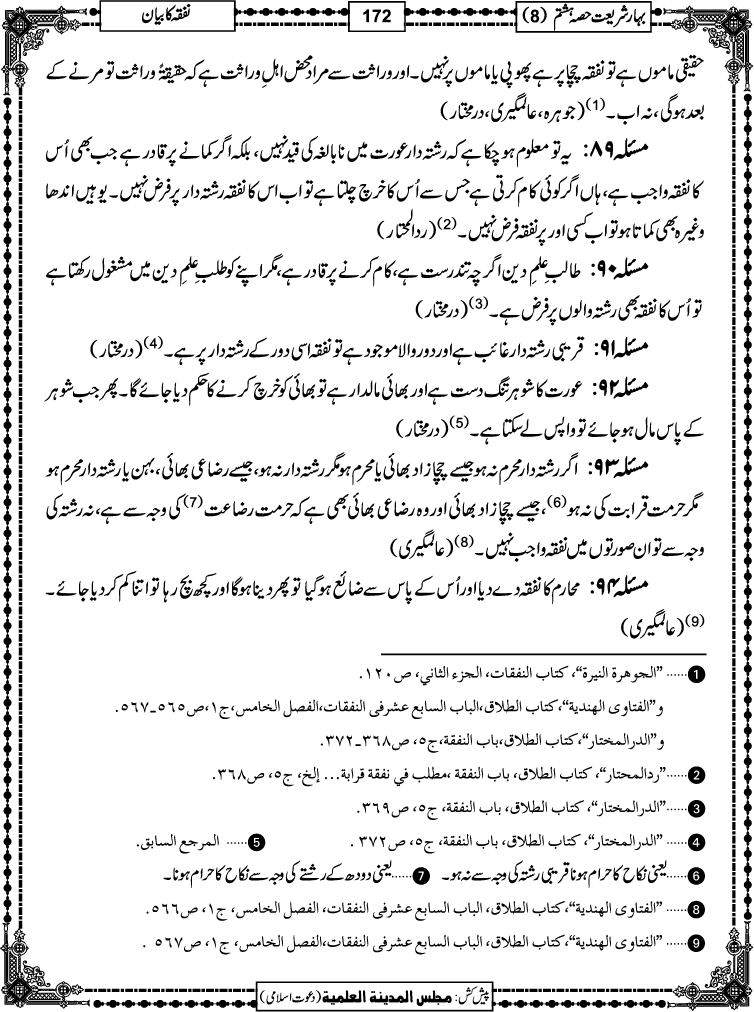 بہار شریعت حصہ ہشتم (8)
172
نفقہ کا بیان
حقیقی ماموں ہے تو نفقہ چچا پر ہے پھوپی یا ماموں پر نہیں۔ اور وراثت سے مراد محض اہلِ وراثت ہے کہ حقیقۃً وراثت تو مرنے کے
بعد ہوگی، نہ اب۔(1) (جوہرہ، عالمگیری، درمختار)
مسئلہ ۸۹: یہ تو معلوم ہو چکا ہے کہ رشتہ دار عورت میں نابالغہ کی قید نہیں، بلکہ اگر کمانے پر قادر ہے جب بھی اُس
کا نفقہ واجب ہے، ہاں اگر کوئی کام کرتی ہے جس سے اُس کا خرچ چلتا ہے تو اب اس کا نفقہ رشتہ دار پر فرض نہیں۔ یو ہیں اندھا
وغیرہ بھی کماتا ہو تو اب کسی اور پر نفقہ فرض نہیں۔(2) (ردالمحتار)
مسئلہ ۹۰: طالبِ علمِ دین اگرچہ تندرست ہے، کام کرنے پر قادر ہے، مگر اپنے کو طلبِ علمِ دین میں مشغول رکھتا ہے
تو اُس کا نفقہ بھی رشتہ والوں پر فرض ہے۔(3) (درمختار)
مسئلہ ۹۱: قریبی رشتہ دار غائب ہے اور دور والا موجود ہے تو نفقہ اسی دور کے رشتہ دار پر ہے۔(4) (درمختار)
مسئلہ ۹۲: عورت کا شوہر تنگ دست ہے اور بھائی مالدار ہے تو بھائی کو خرچ کرنے کا حکم دیا جائے گا۔ پھر جب شوہر
کے پاس مال ہو جائے تو واپس لے سکتا ہے۔(5) (درمختار)
مسئلہ ۹۳: اگر رشتہ دار محرم نہ ہو جیسے چچا زاد بھائی یا محرم ہو مگر رشتہ دار نہ ہو، جیسے رضاعی بھائی، بہن یا رشتہ دار محرم ہو
مگر حرمت قرابت کی نہ ہو(6)، جیسے چچا زاد بھائی اور وہ رضاعی بھائی بھی ہے کہ حرمت رضاعت(7) کی وجہ سے ہے، نہ رشتہ کی
وجہ سے تو ان صورتوں میں نفقہ واجب نہیں۔(8) (عالمگیری)
مسئلہ ۹۴: محارم کا نفقہ دے دیا اور اُس کے پاس سے ضائع ہو گیا تو پھر دینا ہوگا اور کچھ بچ رہا تو اتنا کم کر دیا جائے۔
(9) (عالمگیری)
1 ......"الجوهرة النيرة"، كتاب النفقات، الجزء الثاني، ص ١٢٠.
و"الفتاوى الهندية"، كتاب الطلاق، الباب السابع عشر في النفقات، الفصل الخامس، ج١، ص٥٦٥-٥٦٧.
و"الدرالمختار"، كتاب الطلاق، باب النفقة، ج٥، ص٣٦٨-٣٧٢.
2 ......"ردالمحتار"، كتاب الطلاق، باب النفقة، مطلب في نفقة قرابة... إلخ، ج٥، ص٣٦٨.
3 ......"الدرالمختار"، كتاب الطلاق، باب النفقة، ج٥، ص٣٦٩.
4 ...... "الدرالمختار"، كتاب الطلاق، باب النفقة، ج٥، ص ٣٧٢ . 5 ...... المرجع السابق.
6 ......یعنی نکاح کا حرام ہونا قریبی رشتہ کی وجہ سے نہ ہو۔ 7 ......یعنی دودھ کے رشتے کی وجہ سے نکاح کا حرام ہونا۔
8 ...... "الفتاوى الهندية"، كتاب الطلاق، الباب السابع عشر في النفقات، الفصل الخامس، ج١، ص٥٦٦.
9 ...... "الفتاوى الهندية"، كتاب الطلاق، الباب السابع عشر في النفقات، الفصل الخامس، ج١، ص٥٦٧ .
پیش کش: مجلس المدينة العلمية (دعوت اسلامی)